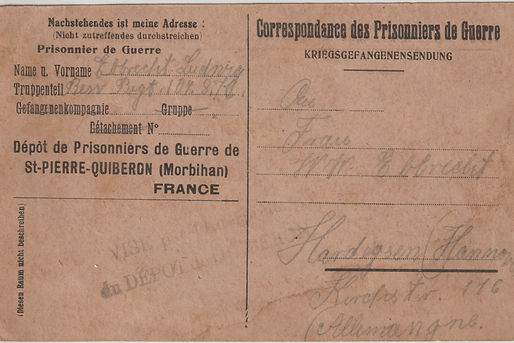 Nachstehendes ist meine Adresse :
(Nicht zutreffendes durchstreichen)
Prisonnier de Guerre
Name u. Vorname Ebbrecht Ludwig
Truppenteil Res. Regt.
Gefangnenkompagnie Gruppe
Détachement N°
Dépôt de Prisonniers de Guerre de
St-PIERRE-QUIBERON (Morbihan)
FRANCE
(Diesen Raum nicht beschreiben)
VISE
du DEPOT
Correspondance des Prisonniers de Guerre
KRIEGSGEFANGENENSENDUNG
An
Frau
Ww. E. Ebbrecht
Hardegsen (Hannov
Kirchstr. 116
(Allemangne.